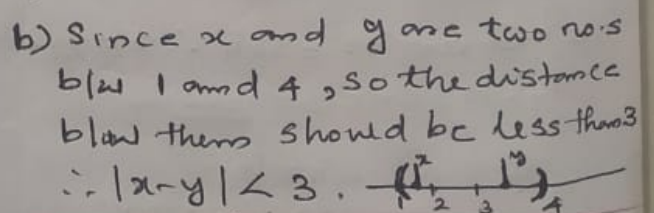 b) Since x and y are two no.s
b/w 1 and 4, so the distance
b/w them should be less than 3
∴ |x-y| < 3. ( x y )
1 2 3 4